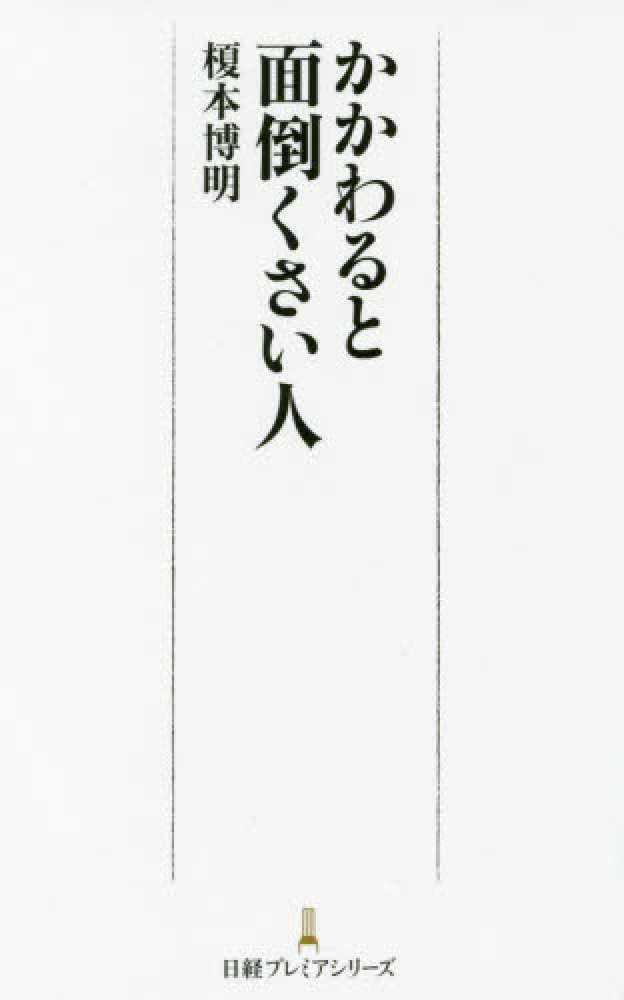 かかわると
面倒くさい人
榎本博明
日経プレミアシリーズ